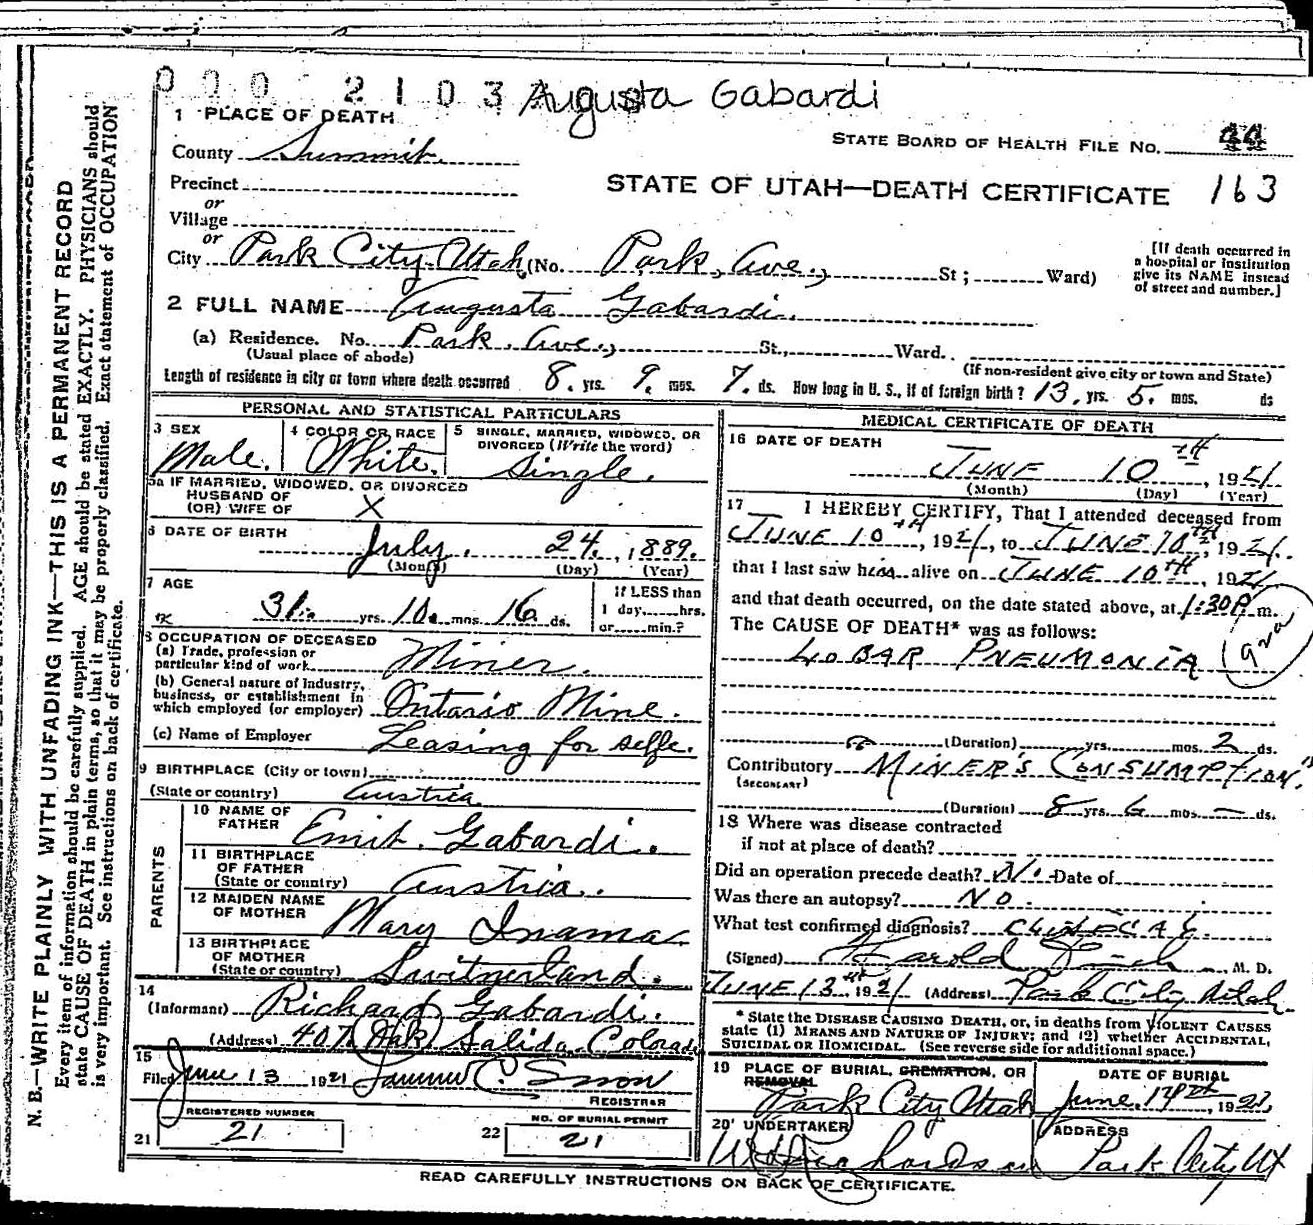 000 2103 Augusta Gabardi
1 PLACE OF DEATH
STATE BOARD OF HEALTH FILE NO. 44
County Summit
STATE OF UTAH—DEATH CERTIFICATE 163
Precinct
or
Village
or
City Park City Utah (No. Park Ave., St; Ward)
[If death occurred in
a hospital or institution
give its NAME instead
of street and number.]
2 FULL NAME Augusta Gabardi.
(a) Residence. No. Park Ave., St., Ward.
(Usual place of abode)
(If non-resident give city or town and State)
Length of residence in city or town where death occurred 8. yrs. 9. mos. 7. ds. How long in U. S., if of foreign birth? 13. yrs. 5. mos. ds
PERSONAL AND STATISTICAL PARTICULARS
3 SEX
Male.
4 COLOR OR RACE
White.
5 SINGLE, MARRIED, WIDOWED, OR
DIVORCED (Write the word)
Single.
5a IF MARRIED, WIDOWED, OR DIVORCED
HUSBAND OF
(OR) WIFE OF X
6 DATE OF BIRTH
July. 24. 1889.
(Month) (Day) (Year)
7 AGE
31. yrs. 10. mos. 16 ds.
If LESS than
1 day, hrs.
or min.?
8 OCCUPATION OF DECEASED
(a) Trade, profession or
particular kind of work Miner.
(b) General nature of industry,
business, or establishment in
which employed (or employer) Ontario Mine.
(c) Name of Employer Leasing for selfe.
9 BIRTHPLACE (City or town)
(State or country) Austria
PARENTS
10 NAME OF
FATHER Emit. Gabardi.
11 BIRTHPLACE
OF FATHER
(State or country) Austria.
12 MAIDEN NAME
OF MOTHER Mary Inama
13 BIRTHPLACE
OF MOTHER
(State or country) Switzerland.
14
(Informant) Richard Gabardi.
(Address) 407 Oak Salida Colorado
15
Filed June 13 1921 Snow
REGISTRAR
REGISTERED NUMBER
21 21
NO. OF BURIAL PERMIT
22 21
MEDICAL CERTIFICATE OF DEATH
16 DATE OF DEATH
JUNE 10th, 1921
(Month) (Day) (Year)
17 I HEREBY CERTIFY, That I attended deceased from
JUNE 10TH, 1921, to JUNE 10TH, 1921.
that I last saw him alive on JUNE 10TH, 1921
and that death occurred, on the date stated above, at 1:30 P. m.
The CAUSE OF DEATH* was as follows:
LOBAR PNEUMONIA
(Duration) yrs. mos. 2 ds.
Contributory MINER'S CONSUMPTION."
(SECONDARY)
(Duration) 8 yrs. 6 mos. — ds.
18 Where was disease contracted
if not at place of death?
Did an operation precede death? No. Date of
Was there an autopsy? No.
What test confirmed diagnosis? CLINICAL.
(Signed) Harold M. D.
JUNE 13th 1921 (Address) Park City, Utah.
* State the DISEASE CAUSING DEATH, or, in deaths from VIOLENT CAUSES
state (1) MEANS AND NATURE OF INJURY; and (2) whether ACCIDENTAL,
SUICIDAL OR HOMICIDAL. (See reverse side for additional space.)
19 PLACE OF BURIAL, CREMATION, OR
REMOVAL
Park City Utah
DATE OF BURIAL
June. 14th, 1921,
20 UNDERTAKER
Richardson
ADDRESS
Park City Ut
READ CAREFULLY INSTRUCTIONS ON BACK OF CERTIFICATE.
N. B.—WRITE PLAINLY WITH UNFADING INK—THIS IS A PERMANENT RECORD
Every item of information should be carefully supplied. AGE should be stated EXACTLY. PHYSICIANS should
state CAUSE OF DEATH in plain terms, so that it may be properly classified. Exact statement of OCCUPATION
is very important. See instructions on back of certificate.